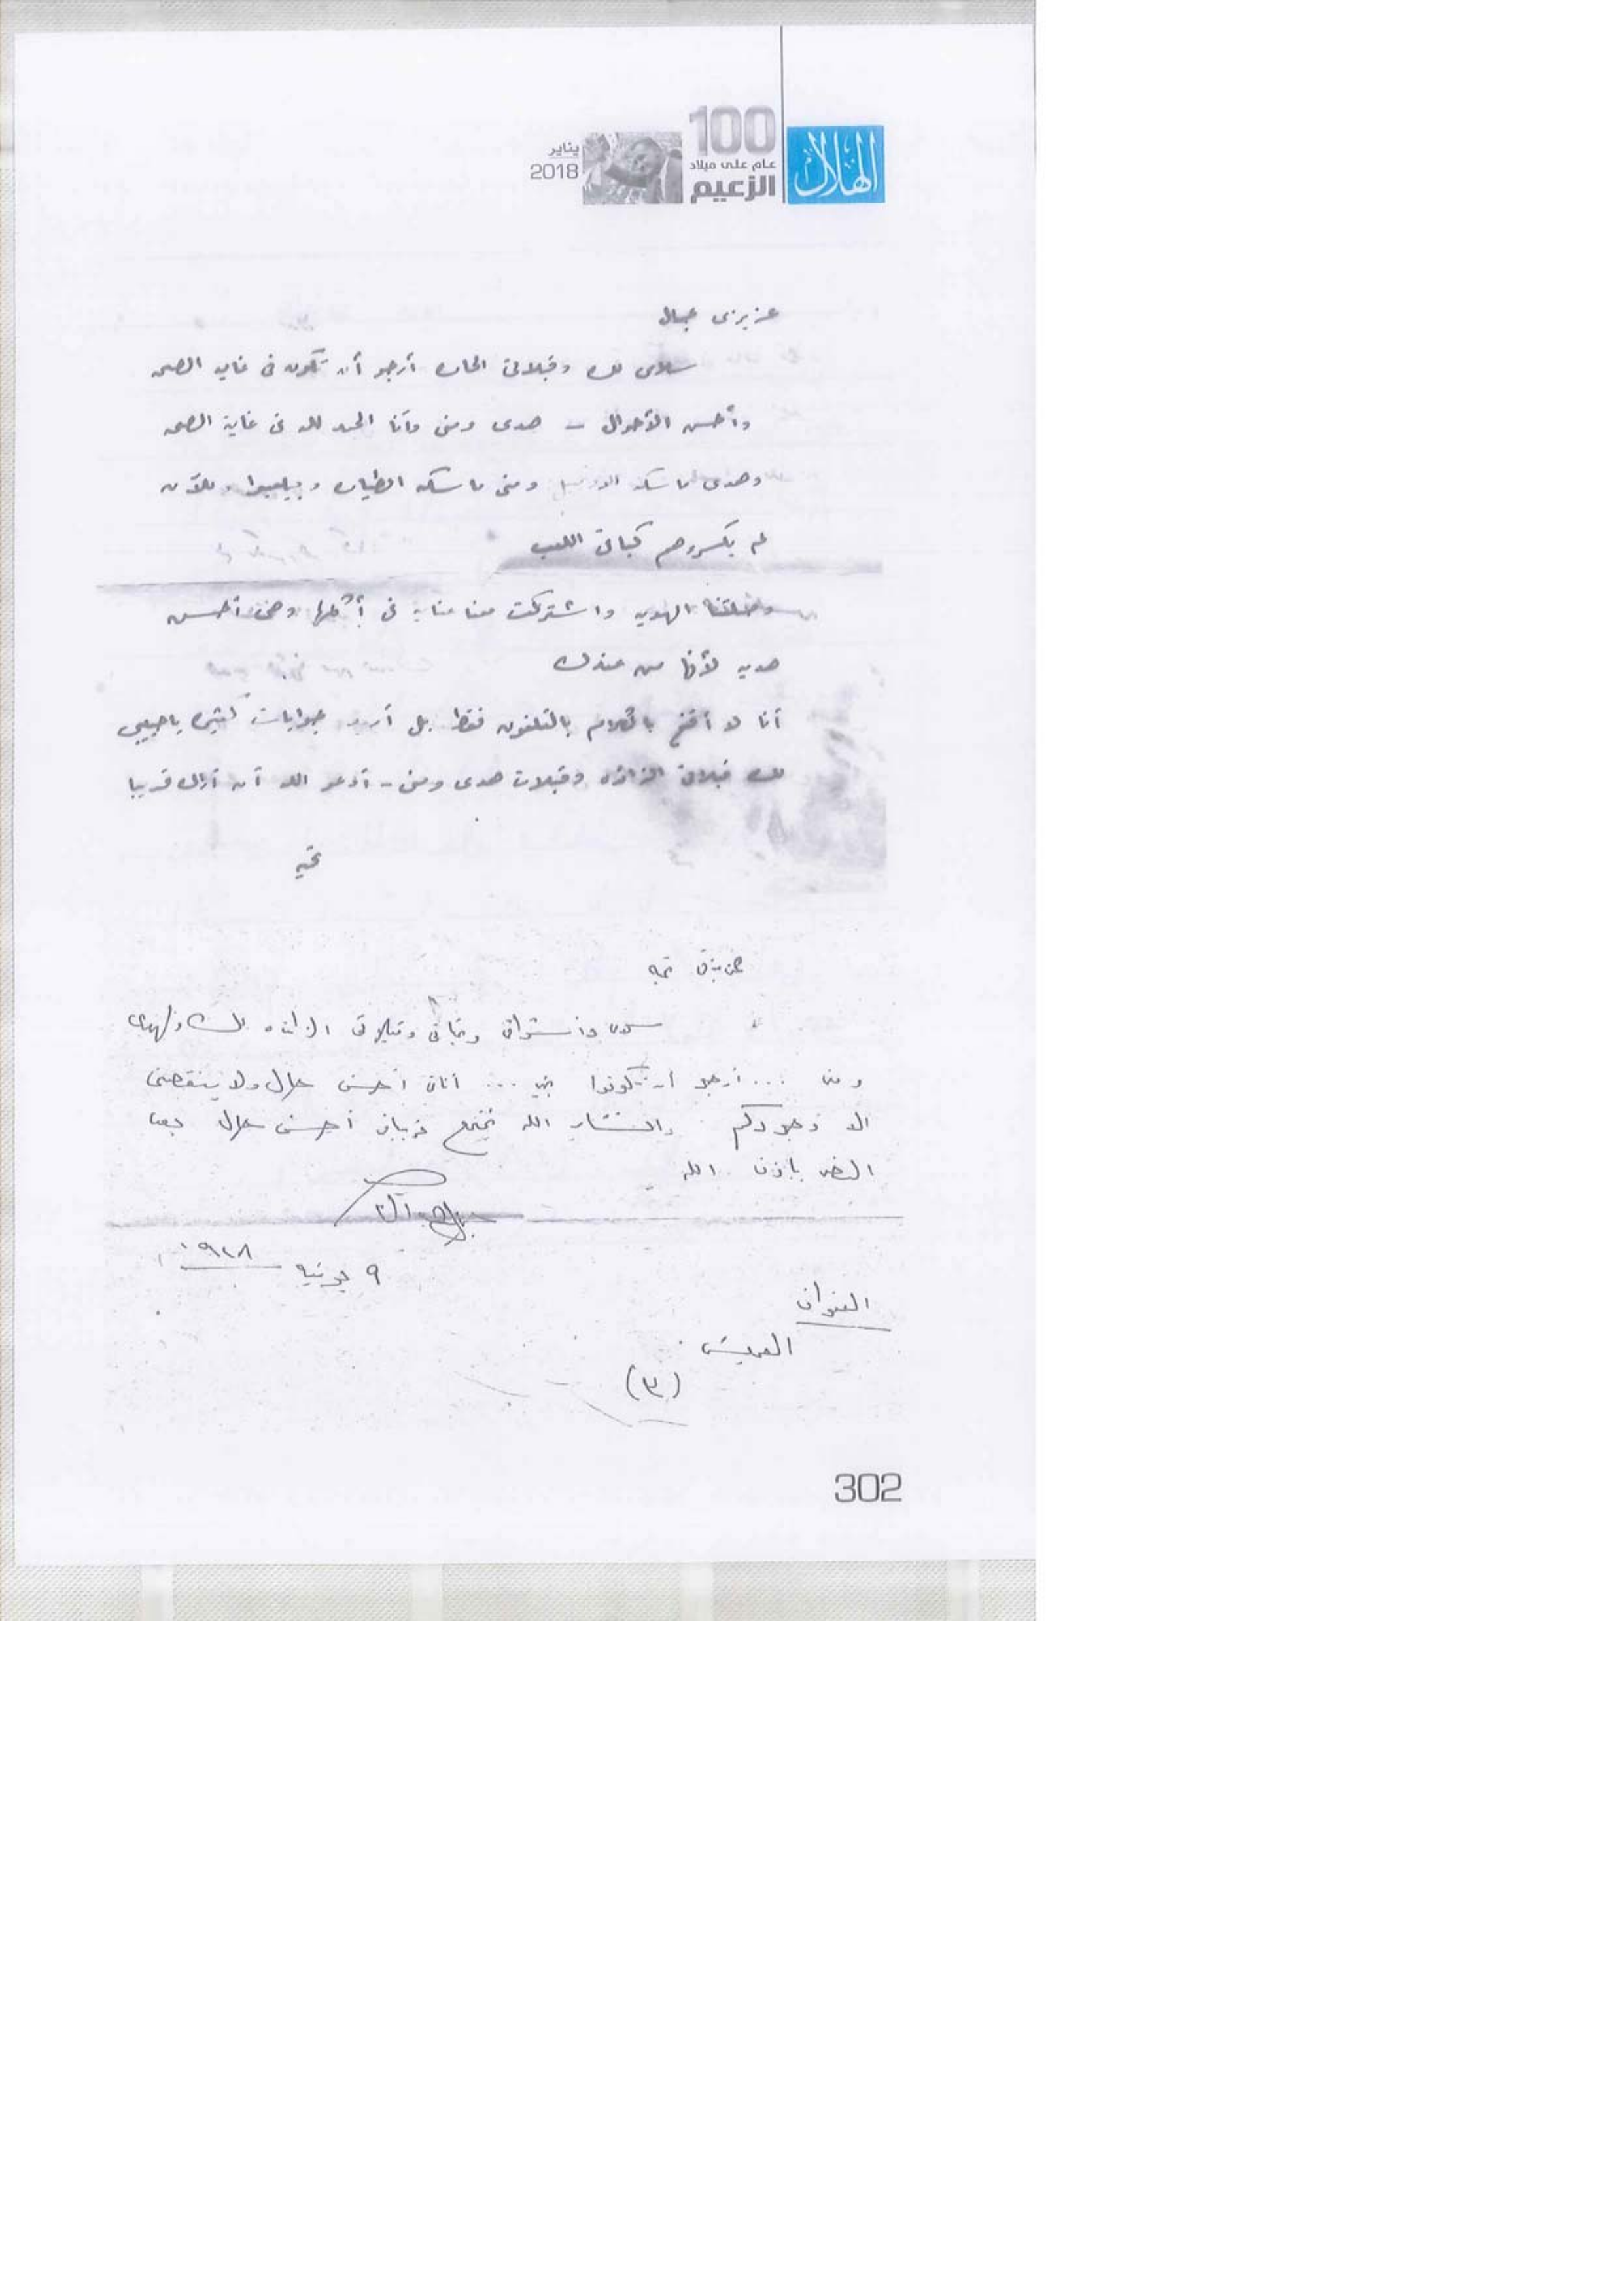 الهلال
100
عام على ميلاد
الزعيم
يناير
2018
عزيزى جمال
سلامى لك وقبلاتى الحاره أرجو أن تكون فى غايه الصحه
وأحسن الأحوال - هدى ومنى وأنا الحمد لله فى غاية الصحه
وهدى ماسكه ومنى ماسكه الطياره وبيلعبوا وللآن
لم يكسروهم كباقى اللعب
وصلتنا الهديه واشتركت معنا فى أكلها وهى أحسن
هديه لأنها من عندك
أنا لا أقنع بالكلام بالتلفون فقط بل أريد جوابات كثيره ياحبيبى
لك قبلاتى الزائده وقبلات هدى ومنى - أدعو الله أن أراك قريبا
تحيه
عزيزتى تحيه
سلامى وأشواقى وقبلاتى الزائده لك ولهدى
ومنى ... أرجو أن تكونوا بخير ... أنا فى أحسن حال ولا ينقصنى
الا وجودكم وانشاء الله نجتمع قريبا فى أحسن حال بعد
النصر باذن الله
جمال عبد الناصر
٩ يونيه ١٩٤٨
العنوان
العريش
(٣)
302